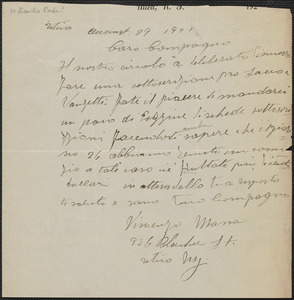 Utica, N. Y. 192
Utica August 29 1927
Caro Compagno
Il nostro circolo a deliberato di nuovo
fare una sottoscrizione pro Sacco
Vanzetti. Fate il piacere di mandarci
un paio di dozzine di schede sottoscri
zioni facendoti sapere che il gior
no 26 abbiamo tenuto un comi
zio a tali caso ne fruttato più
dollari in attesa della tua risposta
ti saluto e sono tuo Compagno
Vincenzo Manna
926 Blucher St.
Utica Ny.